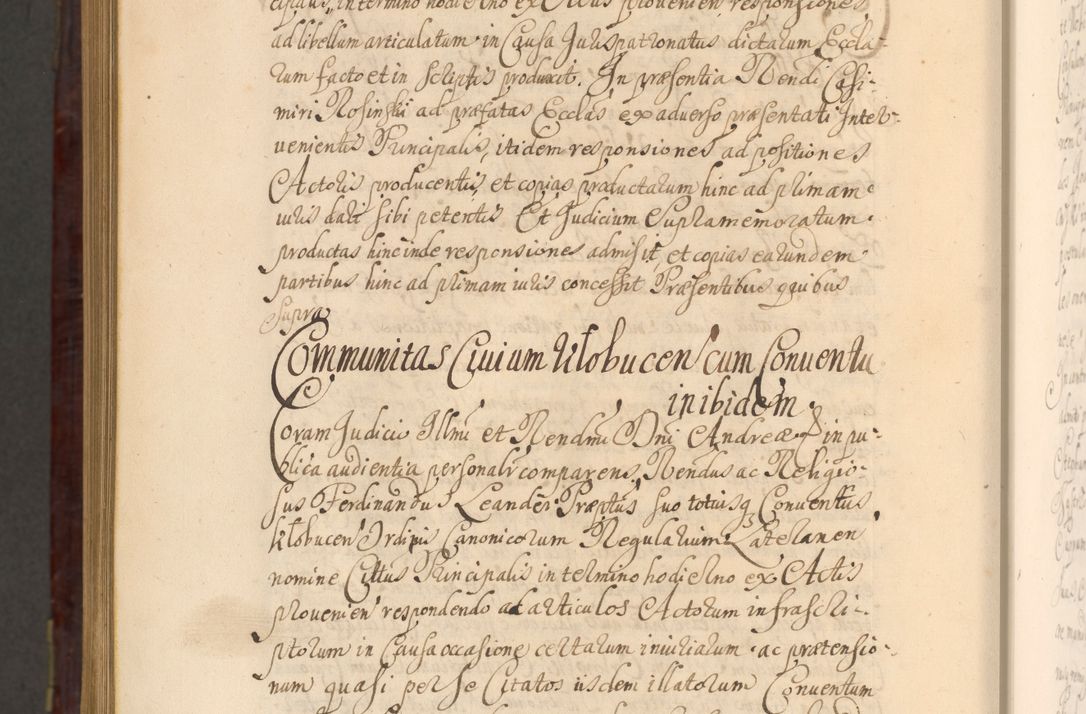 cipalis, in termino hodierno ex Actis provenien responsiones
ad libellum articulatum in Causa Jurispatronatus dictarum Eccla-
rum facto et in scriptis produxit. In præsentia Rendi Casi-
miri Rosinski ad præfatas Ecclas ex adverso præsentati Inter-
venientis Principalis, itidem responsiones ad positiones
Actoris producentis, et copias productarum hinc ad primam
iuris dari sibi petentis Et Judicium Supramemoratum
productas hinc inde responsiones admisit, et copias earundem
partibus hinc ad primam iuris concessit Præsentibus quibus
supra
Communitas Civium Klobucen cum Conventu
inibidem
Coram Judicio Illmi et Rendmi Dni Andreæ in pu-
blica audientia personalr comparens, Rendus ac Religio-
sus Ferdinandus Leander Præptus suo totiusq Conventus
Klobucen Ordinis Canonicorum Regularium Lateranen
nomine Cittus Principalis in termino hodierno ex Actis
provenien respondendo ad articulos Actorum infrascri-
ptorum in Causa occasione certarum iniuriarum ac prætensio-
num quasi per se Citatos iisdem illatorum Conventum